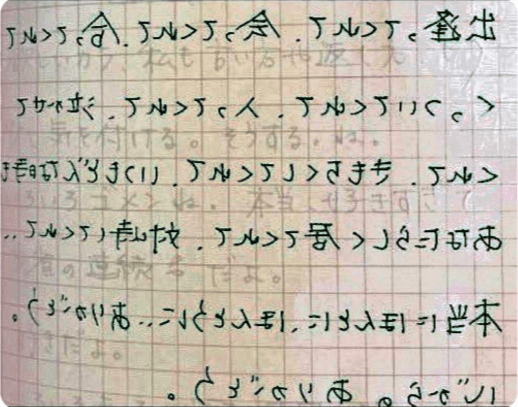 出逢ってくれて.会ってくれて.合ってくれて
くっついてくれて.入ってくれて.泣かせて
くれて.きもちくしてくれて.いつもどんな時も
あなたらしく居てくれて.対峙してくれて‥
本当にほんとに、ほんとうに…ありがとう。
心から。ありがとう。